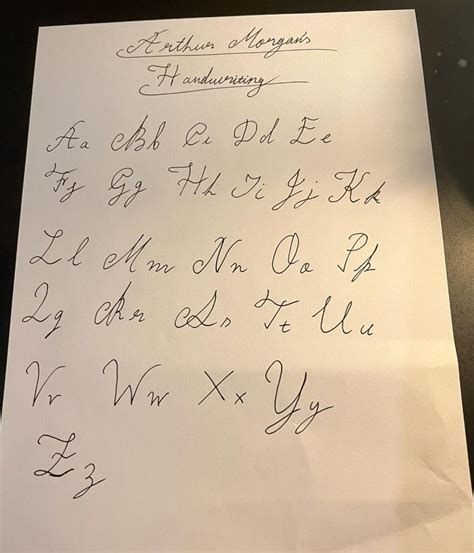 Arthur Morgan's
Handwriting
Aa Bb Cc Dd Ee
Ff Gg Hh Ii Jj Kk
Ll Mm Nn Oo Pp
Qq Rr Ss Tt Uu
Vv Ww Xx Yy
Zz